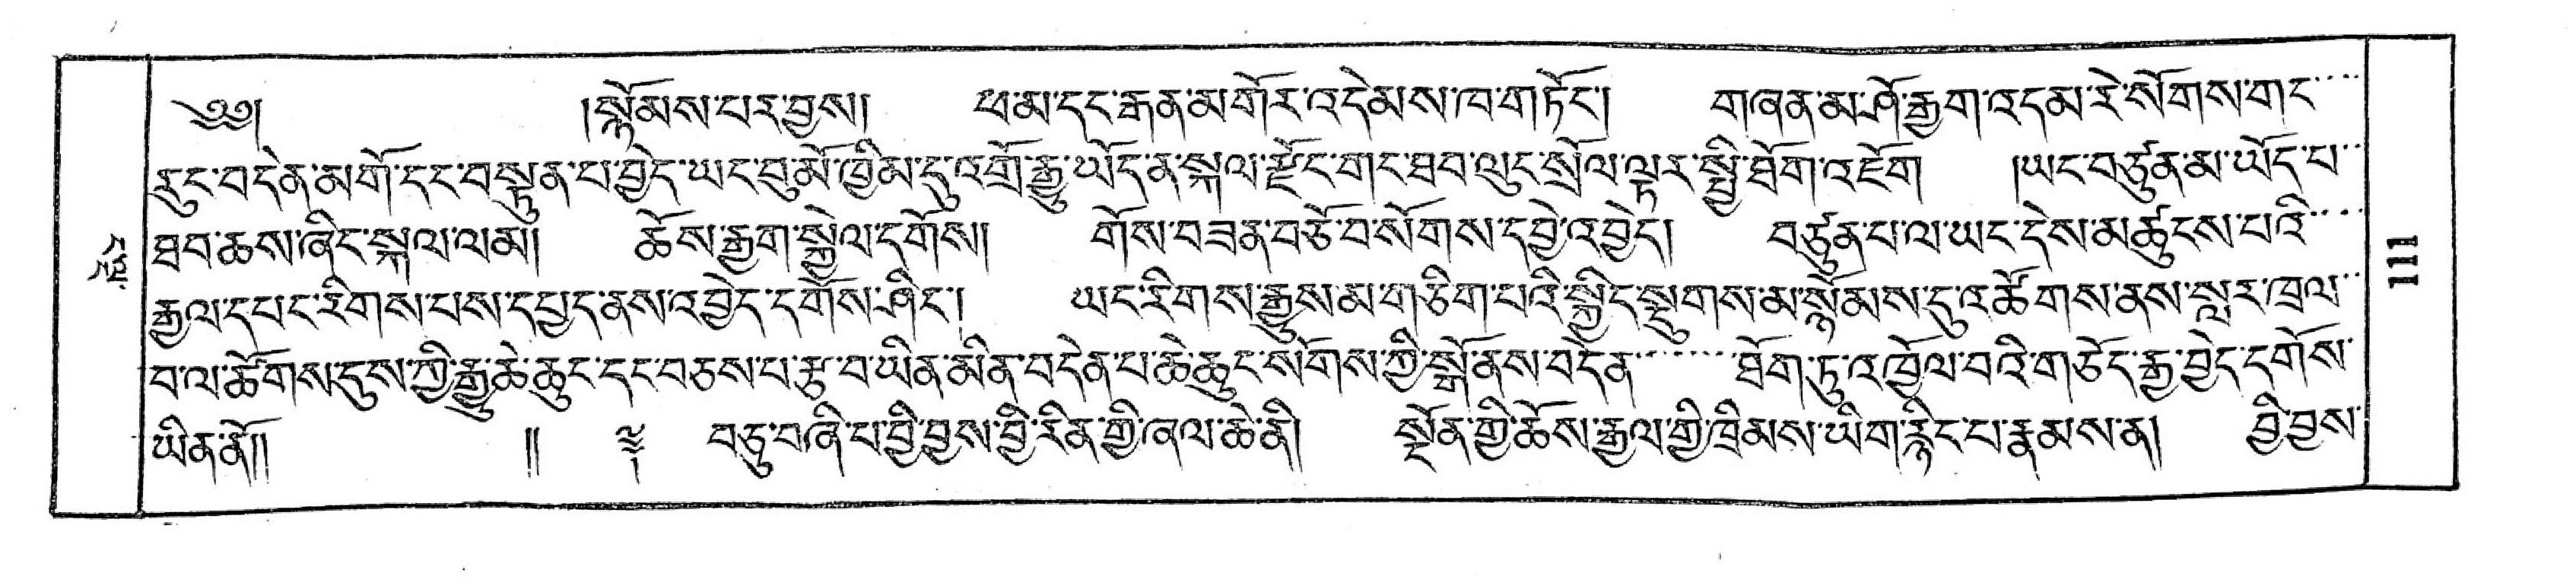 ༄༅། །སྙོམས་པར་བྱས། ཕ་མ་དང་རྒན་མ་གོར་འདེམས་ཁ་གཏོང། གཞན་མ་ཤོ་རྒྱག་འདམ་རེ་སོགས་གང་
རུང་བདེན་མགོ་དང་བསྟུན་པ་བྱེད་ཡང་བུ་མོ་ཁྱིམ་དུ་འགྲོ་རྒྱུ་ཡོད་ན་སྐལ་རྫོང་གང་ཐབ་ལུང་སྲོལ་ལྟར་སྤྱི་ཐོག་འཇོག །ཡང་བཙུན་མ་ཡོད་པ་
ཐབ་ཆས་ཞིང་སྐལ་ལམ། ཆོས་རྒྱག་སྐྱེལ་དགོས། གོས་བཟན་བཙོ་བ་སོགས་དབྱེ་འབྱེད། བཙུན་པ་ལ་ཡང་དེས་མཚུངས་པའི་
རྒྱལ་དཔང་རིགས་པས་དཔྱད་ནས་འབྱེད་དགོས་ཤིང་། ཡང་རིགས་རྒྱུས་མ་གཅིག་པའི་སྐྱིད་སྡུགས་མ་སྙོམས་དུ་འཚོགས་ནས་སླར་ཁྲལ་
བ་ལ་ཚོགས་དུས་ཀྱི་རྒྱུ་ཆེ་ཆུང་དང་བཅས་པ་རྩ་བ་ཡིན་མིན་བདེན་པ་ཆེ་ཆུང་སོགས་ཀྱི་སྒོ་ནས་བདེན་ ཐོག་ཏུ་འཁྱོལ་བའི་གཅོད་རྒྱ་བྱེད་དགོས་
ཡིན་ནོ།། །། ༈ བཅུ་བཞི་པ་བྱི་བྱས་བྱི་རིན་གྱི་ཞལ་ཆེ་ནི། སྔོན་གྱི་ཆོས་རྒྱལ་གྱི་ཁྲིམས་ཡིག་རྙིང་པ་རྣམས་ན། བྱི་བྱས་
111